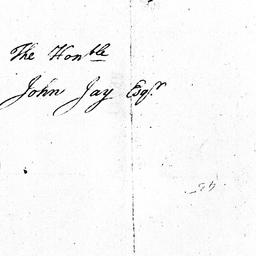 The Hon^ble
John Jay Esq^r.